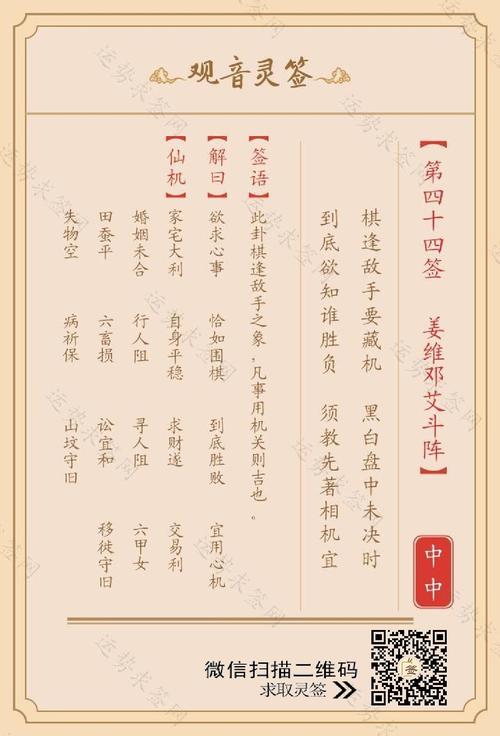 观音灵签
【第四十四签 姜维邓艾斗阵】
中中
棋逢敌手要藏机 黑白盘中未决时
到底欲知谁胜负 须教先著相机宜
【签语】此卦棋逢敌手之象,凡事用机关则吉也。
【解曰】欲求心事 恰如围棋 到底胜败 宜用心机
【仙机】家宅大利 自身平稳 求财遂 交易利
婚姻未合 行人阻 寻人阻 六甲女
田蚕平 六畜损 讼宜和 移徙守旧
失物空 病祈保 山坟守旧
微信扫描二维码
求取灵签 >>
签
运势求签网